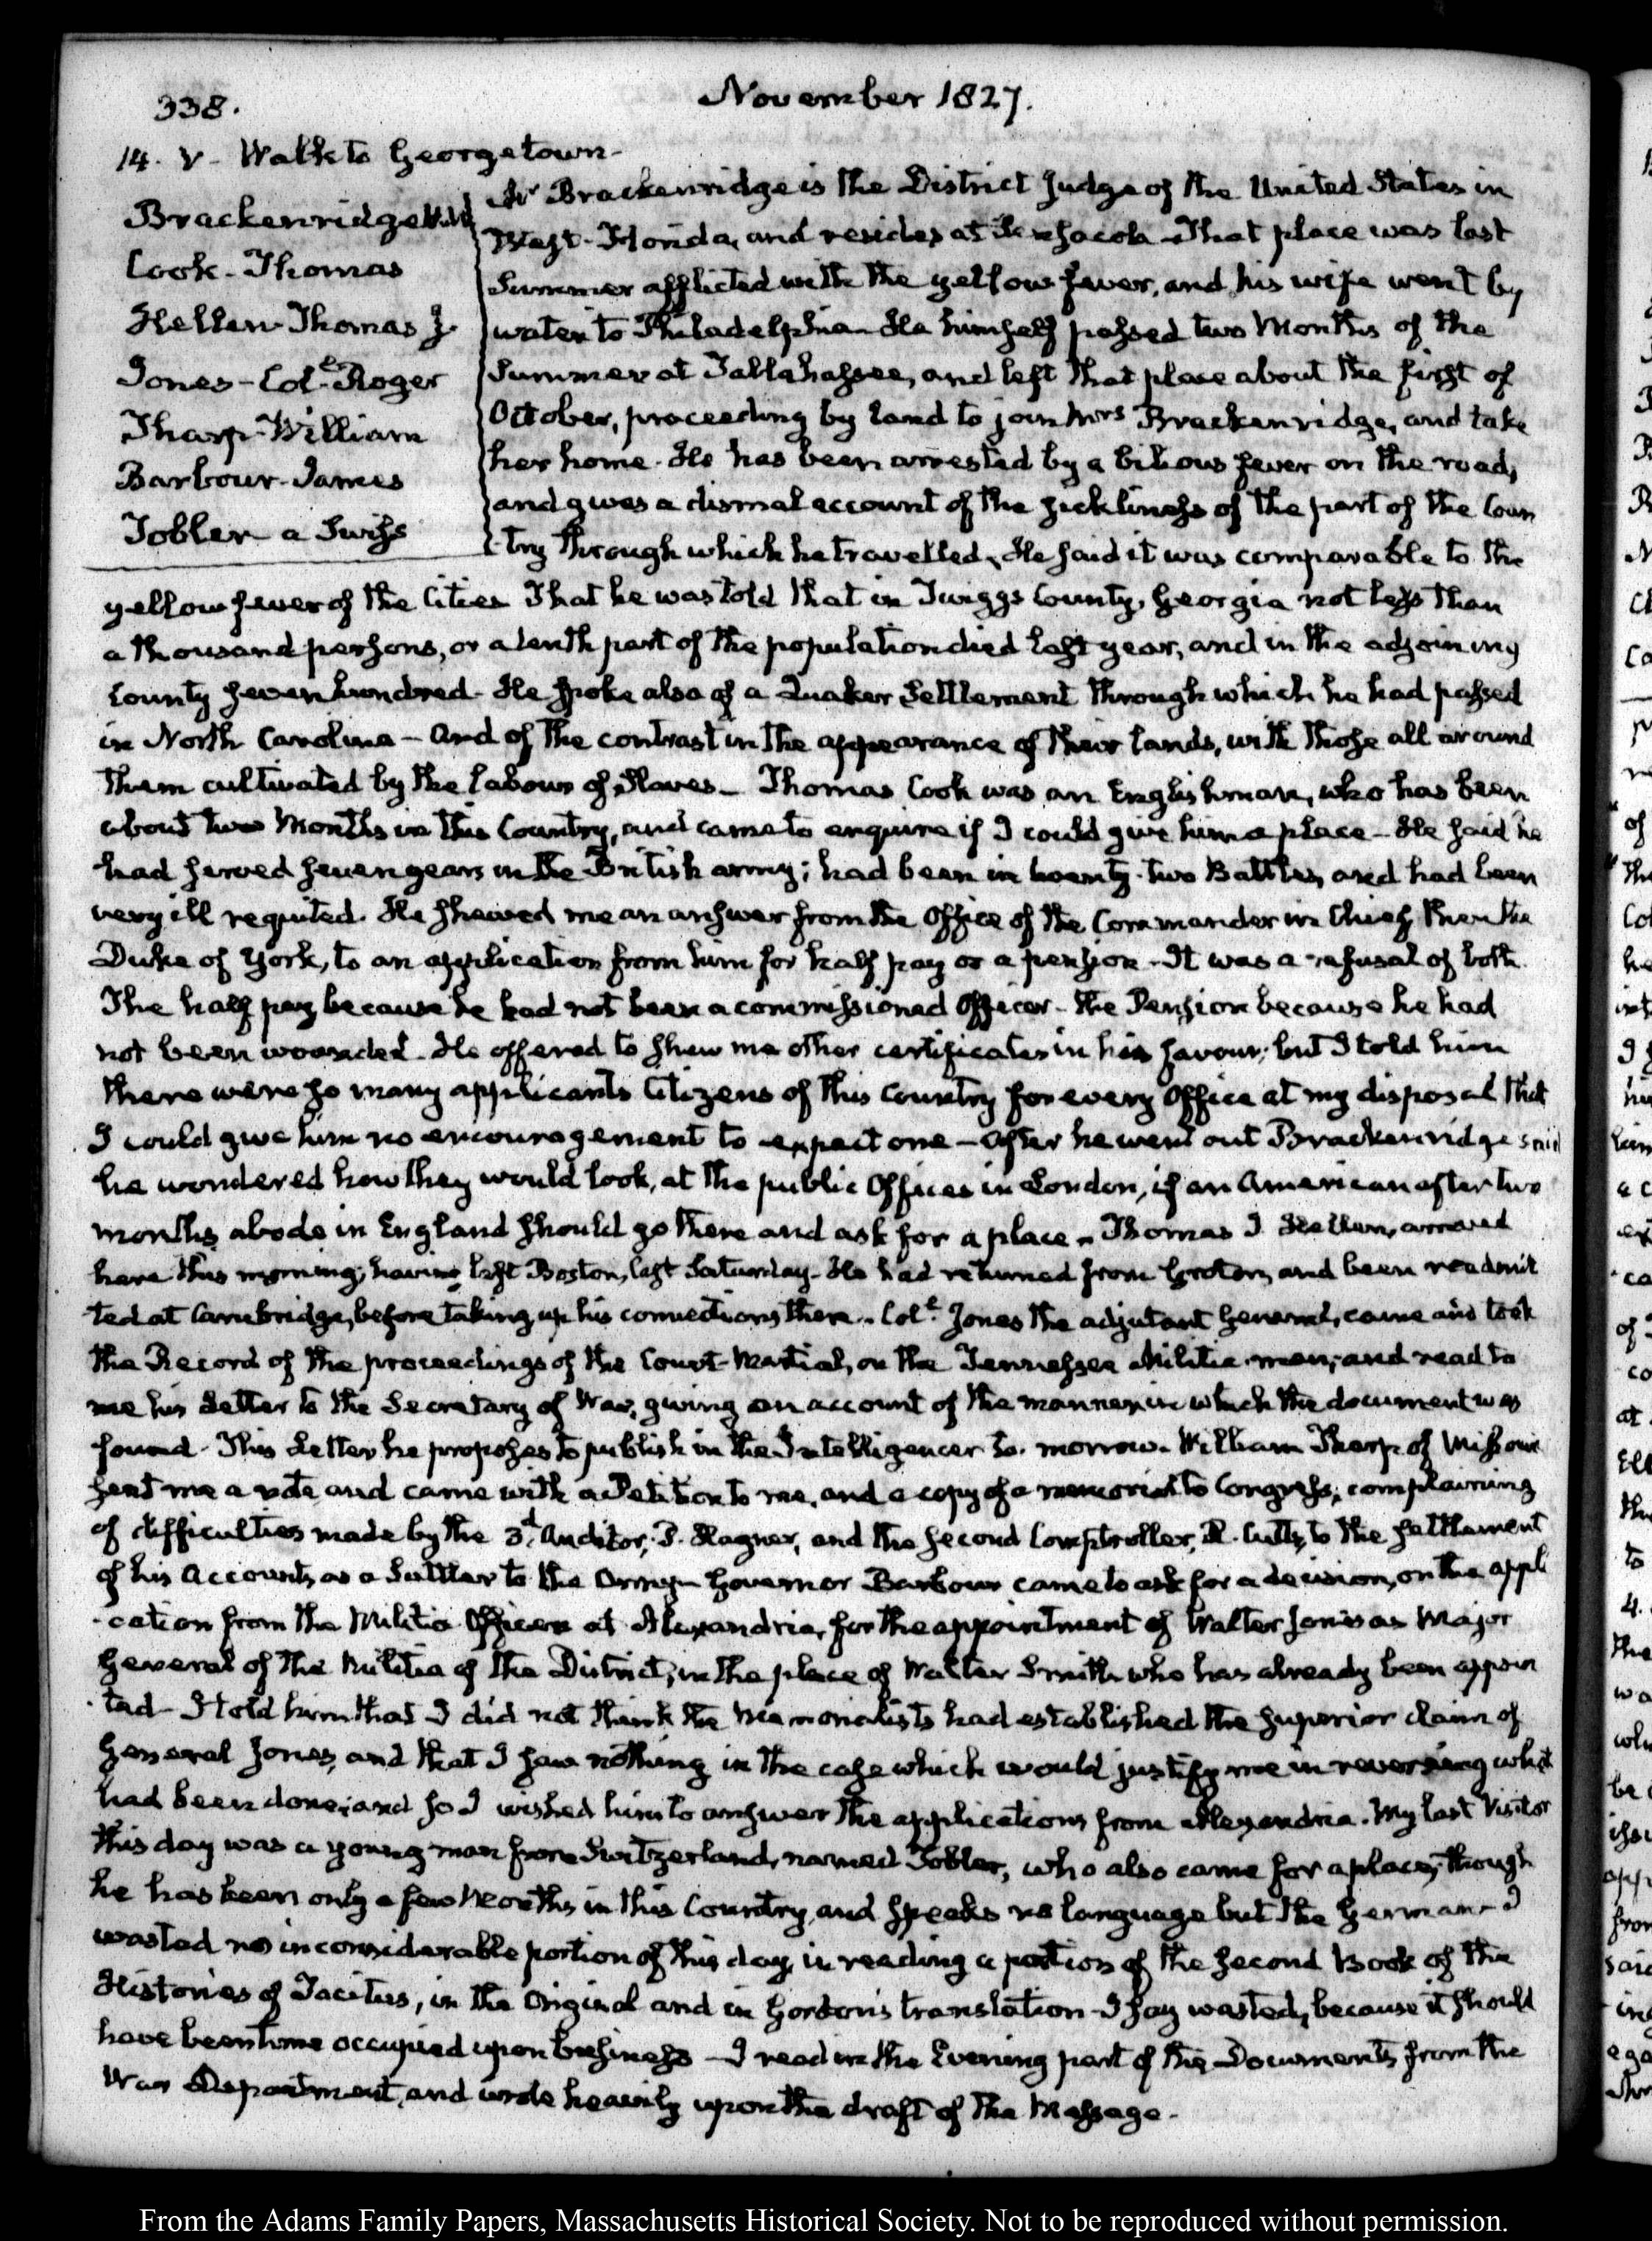 338.
November 1827.
14. V. Walk to Georgetown-
Brackenridge
Cook-Thomas
Hellen-Thomas J.
Jones-Colł. Roger
Tharp-William
Barbour-James
Tobler a Swiss
Mr Brackenridge is the District Judge of the United States in
West-Florida, and resides at Pensacola. That place was last
Summer afflicted with the yellow fever, and his wife went by
water to Philadelphia. He himself passed two Months of the
Summer at Tallahassee, and left that place about the first of
October, proceeding by land to join Mrs Brackenridge, and take
her home. He has been arrested by a bilious fever on the road,
and gives a dismal account of the sickliness of the part of the Coun
-try through which he travelled. He said it was comparable to the
yellow fever of the Cities That he was told that in Twiggs County, Georgia not less than
a thousand persons, or a tenth part of the population died last year, and in the adjoining
County seven hundred. He spoke also of a Quaker Settlement through which he had passed
in North Carolina - and of the contrast in the appearance of their lands, with those all around
them cultivated by the labour of Slaves- Thomas Cook was an Englishman, who has been
about two Months in this Country, and came to enquire if I could give him a place- He said he
had served seven years in the British army; had been in twenty-two Battles, and had been
very ill requited. He shewed me an answer from the Office of the Commander in Chief, then the
Duke of York, to an application from him for half pay or a pension. It was a refusal of both.
The half pay because he had not been a commissioned Officer- the Pension because he had
not been wounded. He offered to shew me other certificates in his favour; but I told him
there were so many applicants Citizens of this Country for every Office at my disposal that
I could give him no encouragement to expect one- After he went out Brackenridge said
he wondered how they would look, at the public Offices in London, if an American after two
months abode in England should go there and ask for a place. Thomas J Hellen, arrived
here this morning, having left Boston, last Saturday. He had returned from Groton, and been readmit
-ted at Cambridge, before taking up his connections there. Colł. Jones the adjutant General, came and took
the Record of the proceedings of the Court-Martial, on the Tennessee Militia-men; and read to
me his Letter to the Secretary of War, giving an account of the manner in which the document was
found. This Letter he proposes to publish in the Intelligencer to-morrow. William Tharp of Missouri
sent me a note and came with a Petition to me, and a copy of a memorial to Congress; complaining
of difficulties made by the 3d. Auditor, P. Hagner, and the second Comptroller, R. Cutts, to the settlement
of his Accounts as a Suttler to the Army- Governor Barbour came to ask for a decision, on the appli
-cation from the Militia Officers at Alexandria, for the appointment of Walter Jones as Major
General of the Militia of the District, in the place of Walter Smith who has already been appoin
-ted- I told him that I did not think the Memorialists had established the superior claim of
General Jones, and that I saw nothing in the case which would justify me in reversing what
had been done; and so I wished him to answer the applications from Alexandria. My last Visitor
this day was a young man from Switzerland, named Tobler, who also came for a place, though
he has been only a few Months in this Country, and speaks no language but the German- I
wasted no inconsiderable portion of this day, in reading a portion of the second Book of the
Histories of Tacitus, in the Original and in Gordon's translation- I say wasted, because it should
have been time occupied upon business - I read in the Evening part of the Documents from the
War Department, and wrote heavily upon the draft of the Message-
From the Adams Family Papers, Massachusetts Historical Society. Not to be reproduced without permission.